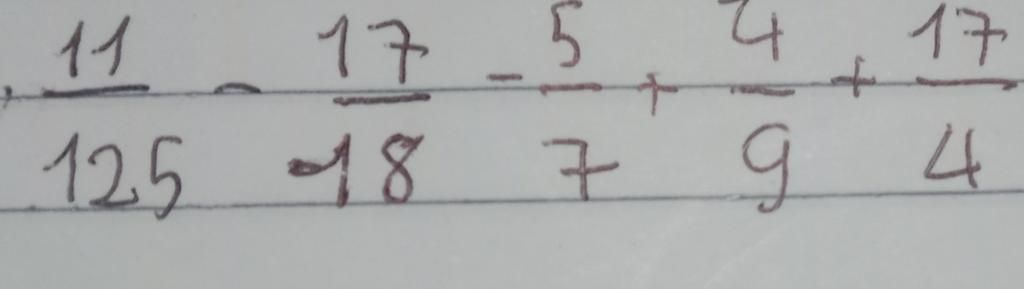 11/125 - 17/-18 - 5/7 + 4/9 + 17/4